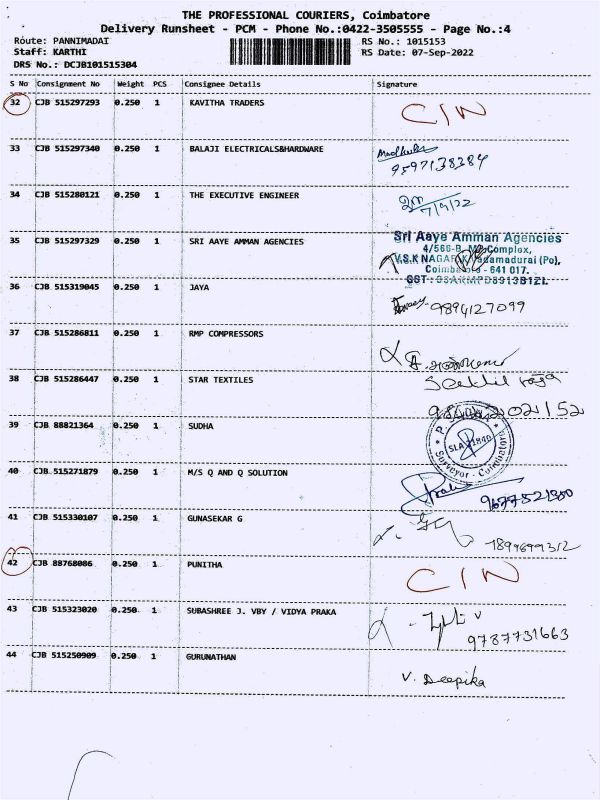 THE PROFESSIONAL COURIERS, Coimbatore
Delivery Runsheet - PCM - Phone No.:0422-3505555 - Page No.:4
Route: PANNIMADAI
RS No.: 1015153
Staff: KARTHI
RS Date: 07-Sep-2022
DRS No.: DCJB101515304
S No Consignment No Weight PCS Consignee Details Signature
32 CJB 515297293 0.250 1 KAVITHA TRADERS CIN
33 CJB 515297340 0.250 1 BALAJI ELECTRICALS&HARDWARE
9597138384
34 CJB 515280121 0.250 1 THE EXECUTIVE ENGINEER
7/9/22
35 CJB 515297329 0.250 1 SRI AAYE AMMAN AGENCIES
Sri Aaye Amman Agencies
4/566-B, Complex,
V.S.K NAGAR
Coimbatore - 641 017.
36 CJB 515319045 0.250 1 JAYA
9894127099
37 CJB 515286811 0.250 1 RMP COMPRESSORS
38 CJB 515286447 0.250 1 STAR TEXTILES
39 CJB 88821364 0.250 1 SUDHA
Surveyor - Coimbatore
40 CJB 515271879 0.250 1 M/S Q AND Q SOLUTION
41 CJB 515330107 0.250 1 GUNASEKAR G
42 CJB 88768086 0.250 1 PUNITHA CIN
43 CJB 515323020 0.250 1 SUBASHREE J. VBY / VIDYA PRAKA
9787731663
44 CJB 515250909 0.250 1 GURUNATHAN
V. Deepika